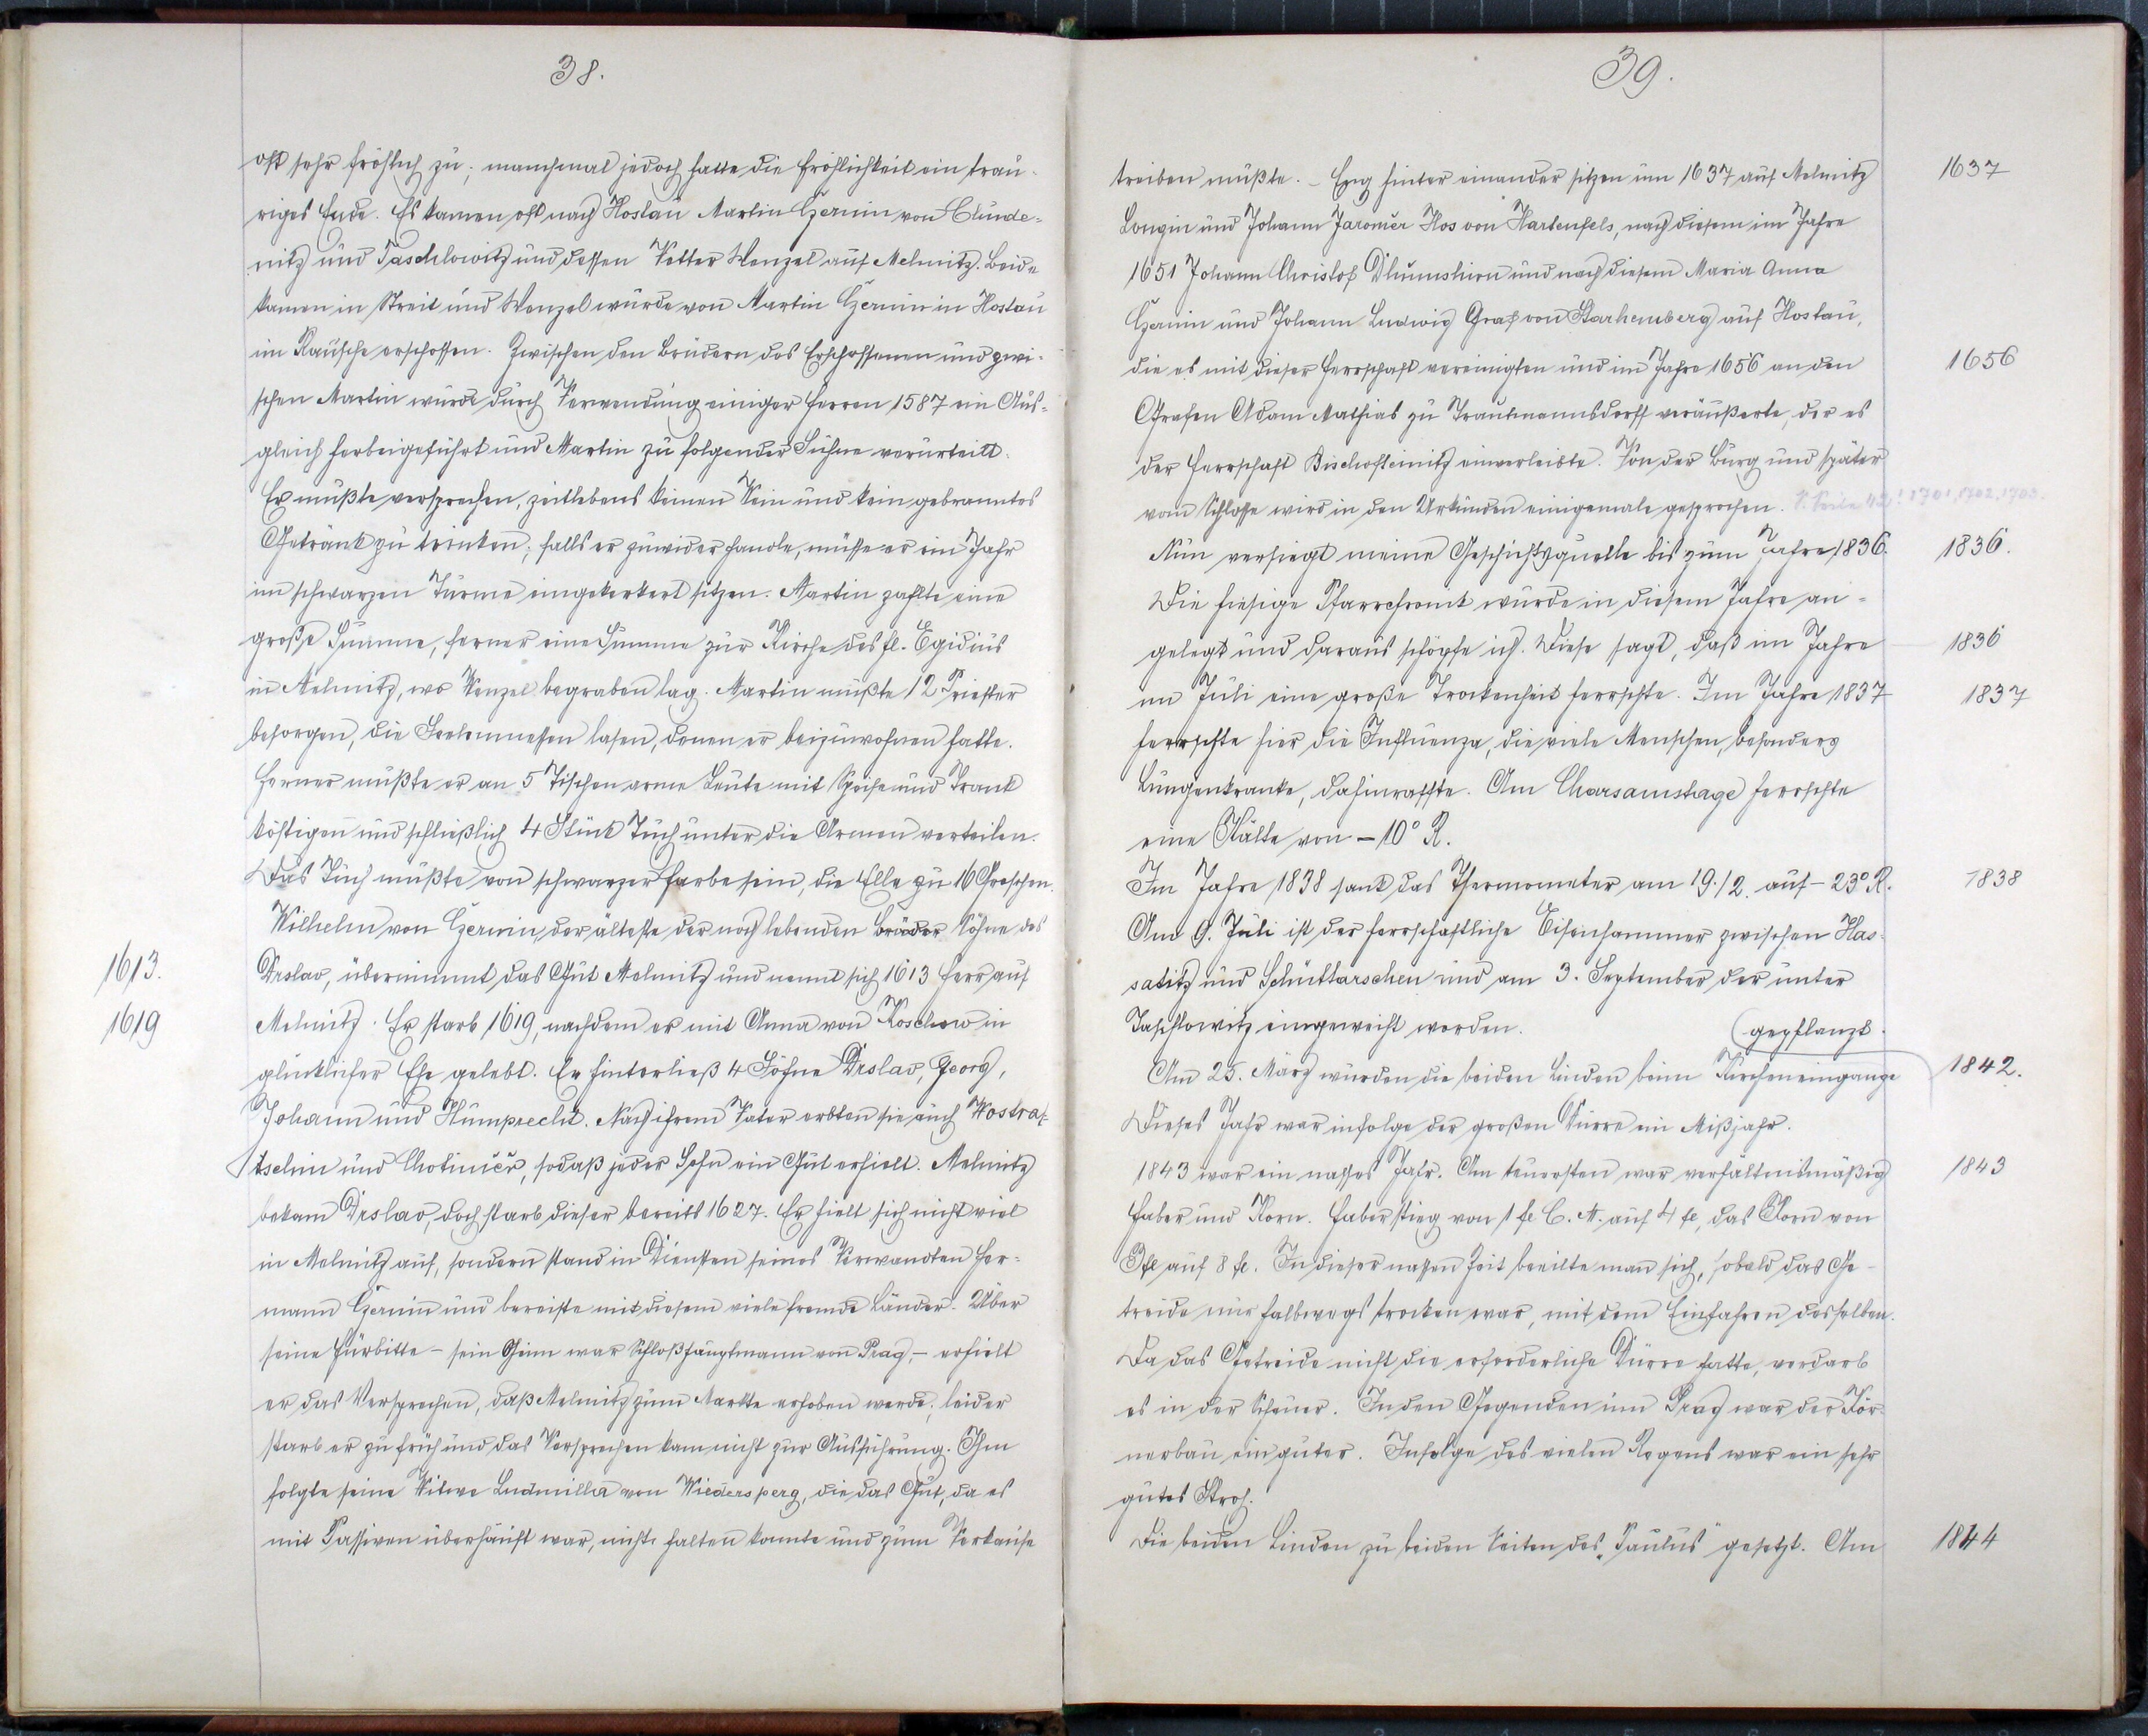 38.
oft sehr fröhlich zu; manchmal jedoch hatte die Fröhlichkeit ein trau-
riges Ende. Es kamen oft nach Hostau Martin Czernin von Chude-
nitz und Taschlowitz und dessen Vetter Wenzel auf Melmitz. Beide
kamen in Streit und Wenzel wurde von Martin Czernin in Hostau
im Rausche erschossen. Zwischen den Brüdern des Erschossenen und zwi-
schen Martin wurde durch Verwendung einiger Herren 1587 ein Aus-
gleich herbeigeführt und Martin zu folgender Sühne verurteilt.
Er mußte versprechen, zeitlebens keinen Wein und kein gebranntes
Getränk zu trinken; falls er zuwider handle, müsse er ein Jahr
im schwarzen Turme eingekerkert sitzen. Martin zahlte eine
große Summe, ferner eine Summe zur Kirche des hl. Egidius
in Melmitz, wo Wenzel begraben lag. Martin mußte 12 Priester
besorgen, die Seelenmessen lasen, denen er beizuwohnen hatte.
Ferner mußte er an 5 Tischen arme Leute mit Speise und Trank
köstigen und schließlich 4 Stück Tuch unter die Armen verteilen.
Das Tuch mußte von schwarzer Farbe sein, die Elle zu 16 Groschen.
Wilhelm von Czernin, der älteste der noch lebenden Brüder Söhne des
1613. Drslav, übernimmt das Gut Melmitz und nennt sich 1613 Herr auf
1619 Melmitz. Er starb 1619, nachdem er mit Anna von Roschow in
glücklicher Ehe gelebt. Er hinterließ 4 Söhne Drslav, Georg,
Johann und Humprecht. Nach ihrem Vater erbten sie auch Wostra-
tschin und Chotimĕř, sodaß jeder Sohn ein Gut erhielt. Melmitz
bekam Drslav, doch starb dieser bereits 1627. Er hielt sich nicht viel
in Melmitz auf, sondern stand in Diensten seines Verwandten Her-
mann Czernin und bereiste mit diesem viele fremde Länder. Über
seine Fürbitte – sein Oheim war Schloßhauptmann von Prag, – erhielt
er das Versprechen, daß Melmitz zum Markte erhoben werde; leider
starb er zu früh und das Versprechen kam nicht zur Ausführung. Ihm
folgte seine Witwe Ludmilla von Wiedersperg, die das Gut, da es
mit Passiven überhäuft war, nicht halten konnte und zum Verkaufe
39.
treiben mußte. – Eng hinter einander sitzen um 1637 auf Melmitz 1637
Longin und Johann Jaroměr Hos von Hartenfels, nach diesem im Jahre
1651 Johann Christof Dlumshirn und nach diesem Maria Anna
Czernin und Johann Ludwig Graf von Starhemberg auf Hostau,
die es mit dieser Herrschaft vereinigten und im Jahre 1656 an den 1656
Grafen Adam Mathias zu Trautmannsdorff veräußerte, der es
der Herrschaft Bischofteinitz einverleibte. Von der Burg und später
vom Schlosse wird in den Urkunden einigemale gesprochen. S. Seite 42! 1701, 1702, 1703.
Nun versiegt meine Geschichtsquelle bis zum Jahre 1836. 1836.
Die hiesige Pfarrchronik wurde in diesem Jahre an-
gelegt und daraus schöpfe ich. Diese sagt, daß im Jahre 1836
im Juli eine große Trockenheit herrschte. Im Jahre 1837 1837
herrschte hier die Influenza, die viele Menschen, besonders
Lungenkranke, dahinraffte. Am Charsamstage herrschte
eine Kälte von – 10° R.
Im Jahre 1838 sank das Thermometer am 19./2. auf – 23° R. 1838
Am 9. Juli ist der herrschaftliche Eisenhammer zwischen Has-
satitz und Schüttarschen und am 3. September der unter
Taschlowitz eingeweiht worden.
gepflanzt.
Am 25. März wurden die beiden Linden beim Kircheneingange 1842.
Dieses Jahr war infolge der großen Dürre ein Mißjahr.
1843 war ein nasses Jahr. Am teuersten war verhältnismäßig 1843
Haber und Korn. Haber stieg von 1 fl C. M. auf 4 fl, das Korn von
3 fl auf 8 fl. In dieser nassen Zeit beeilte man sich, sobald das Ge-
treide nur halbwegs trocken war, mit dem Einfahren desselben.
Da das Getreide nicht die erforderliche Dürre hatte, verdarb
es in der Scheuer. In den Gegenden um Prag war der Kör-
nerbau ein guter. Infolge des vielen Regens war ein sehr
gutes Stroh.
Die beiden Linden zu beiden Seiten des „Paulus" gesetzt. Am 1844